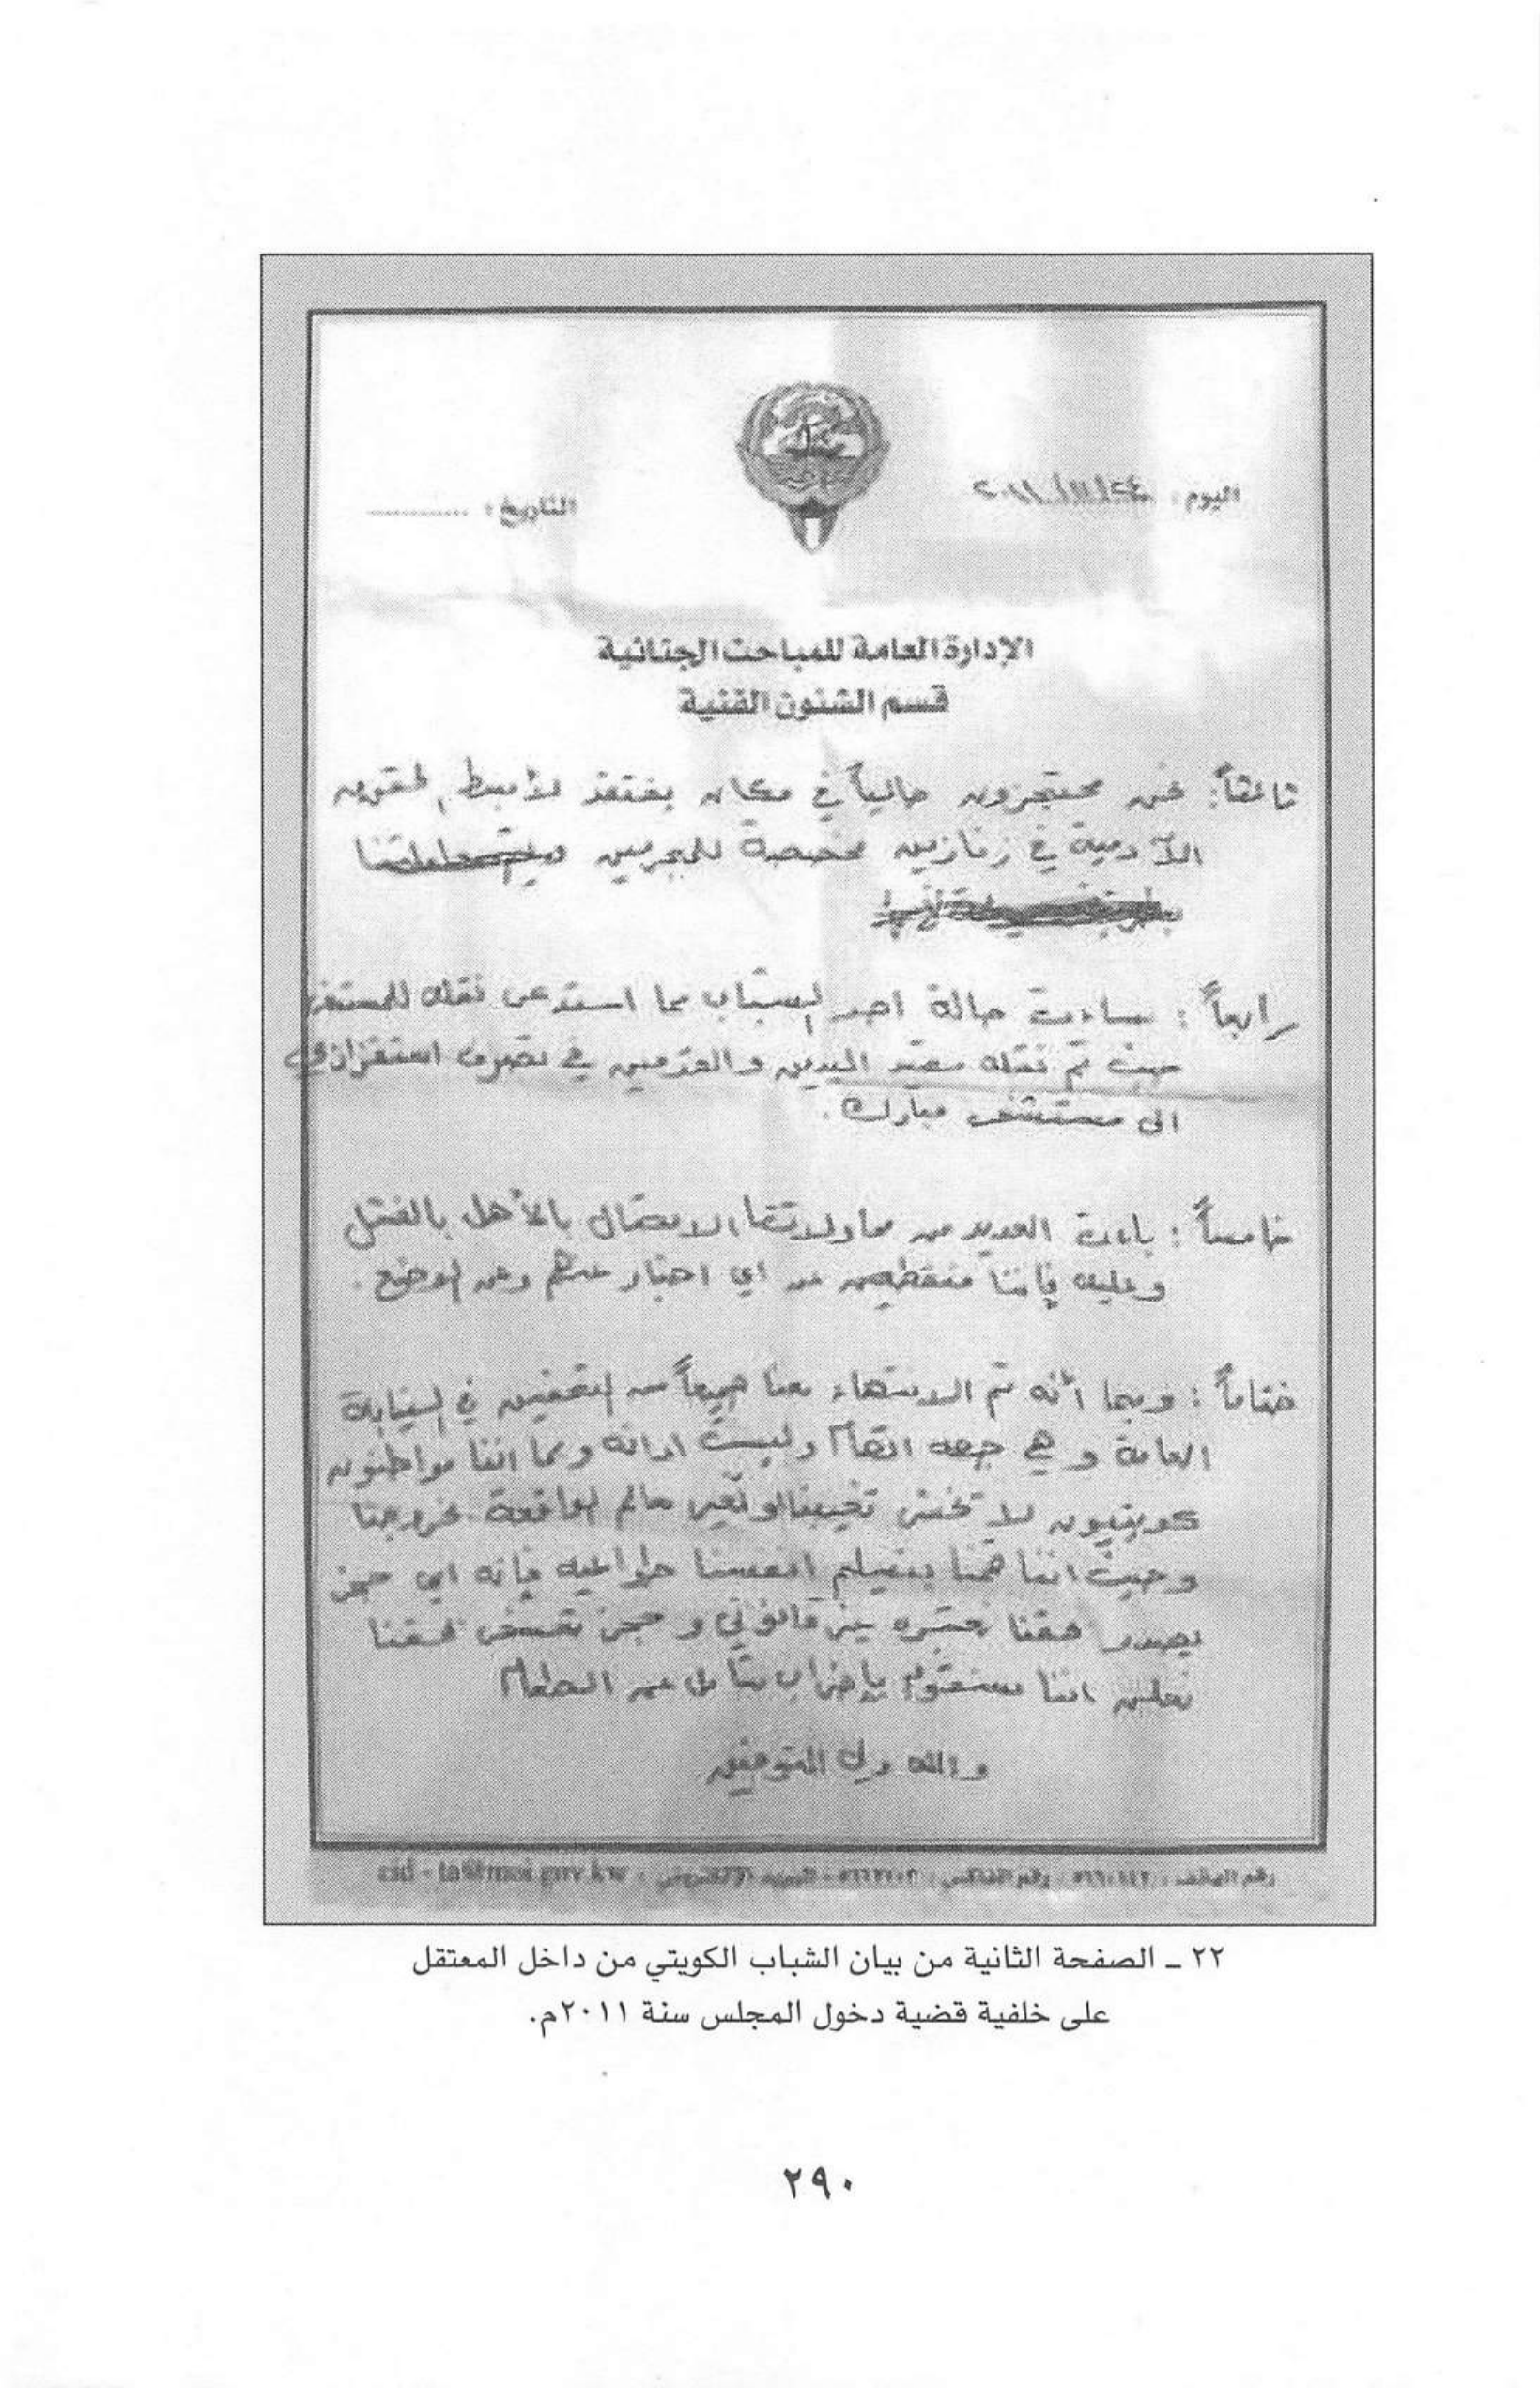 اليوم: ٢٤/١١/٢٠١١
التاريخ: ............
الإدارة العامة للمباحث الجنائية
قسم الشئون الفنية
ثالثاً: نحن محتجزون حالياً في مكان يفتقد لأبسط الحقوق
الآدمية في زنازين مخصصة للمجرمين
رابعاً: ساءت حالة احد الشباب مما استدعى نقله للمستشفى
حيث تم نقله مقيد اليدين والقدمين في تصرف استفزازي
الى مستشفى مبارك.
خامساً: باءت العديد من محاولاتنا الاتصال بالأهل بالفشل
وعليه فإننا منقطعين عن اي اخبار عنهم وعن الوضع.
ختاماً: وبما أنه تم الانتهاء معنا جميعاً من التحقيق في النيابة
العامة وهي جهه اتهام وليست ادانه وبما اننا مواطنون
كويتيون لا تخشى تغيبنا او تغير معالم الواقعة بخروجنا
وحيث اننا قمنا بتسليم انفسنا طواعيه فإنه اي حجز
يصدر بحقنا نعتبره غير قانوني وحجز تعسفي بحقنا
نعلن اننا سنقوم بإضراب شامل عن الطعام
والله ولي التوفيق
رقم الهاتف: رقم الفاكس: البريد الالكتروني:
٢٢ ـ الصفحة الثانية من بيان الشباب الكويتي من داخل المعتقل
على خلفية قضية دخول المجلس سنة ٢٠١١م.
٢٩٠